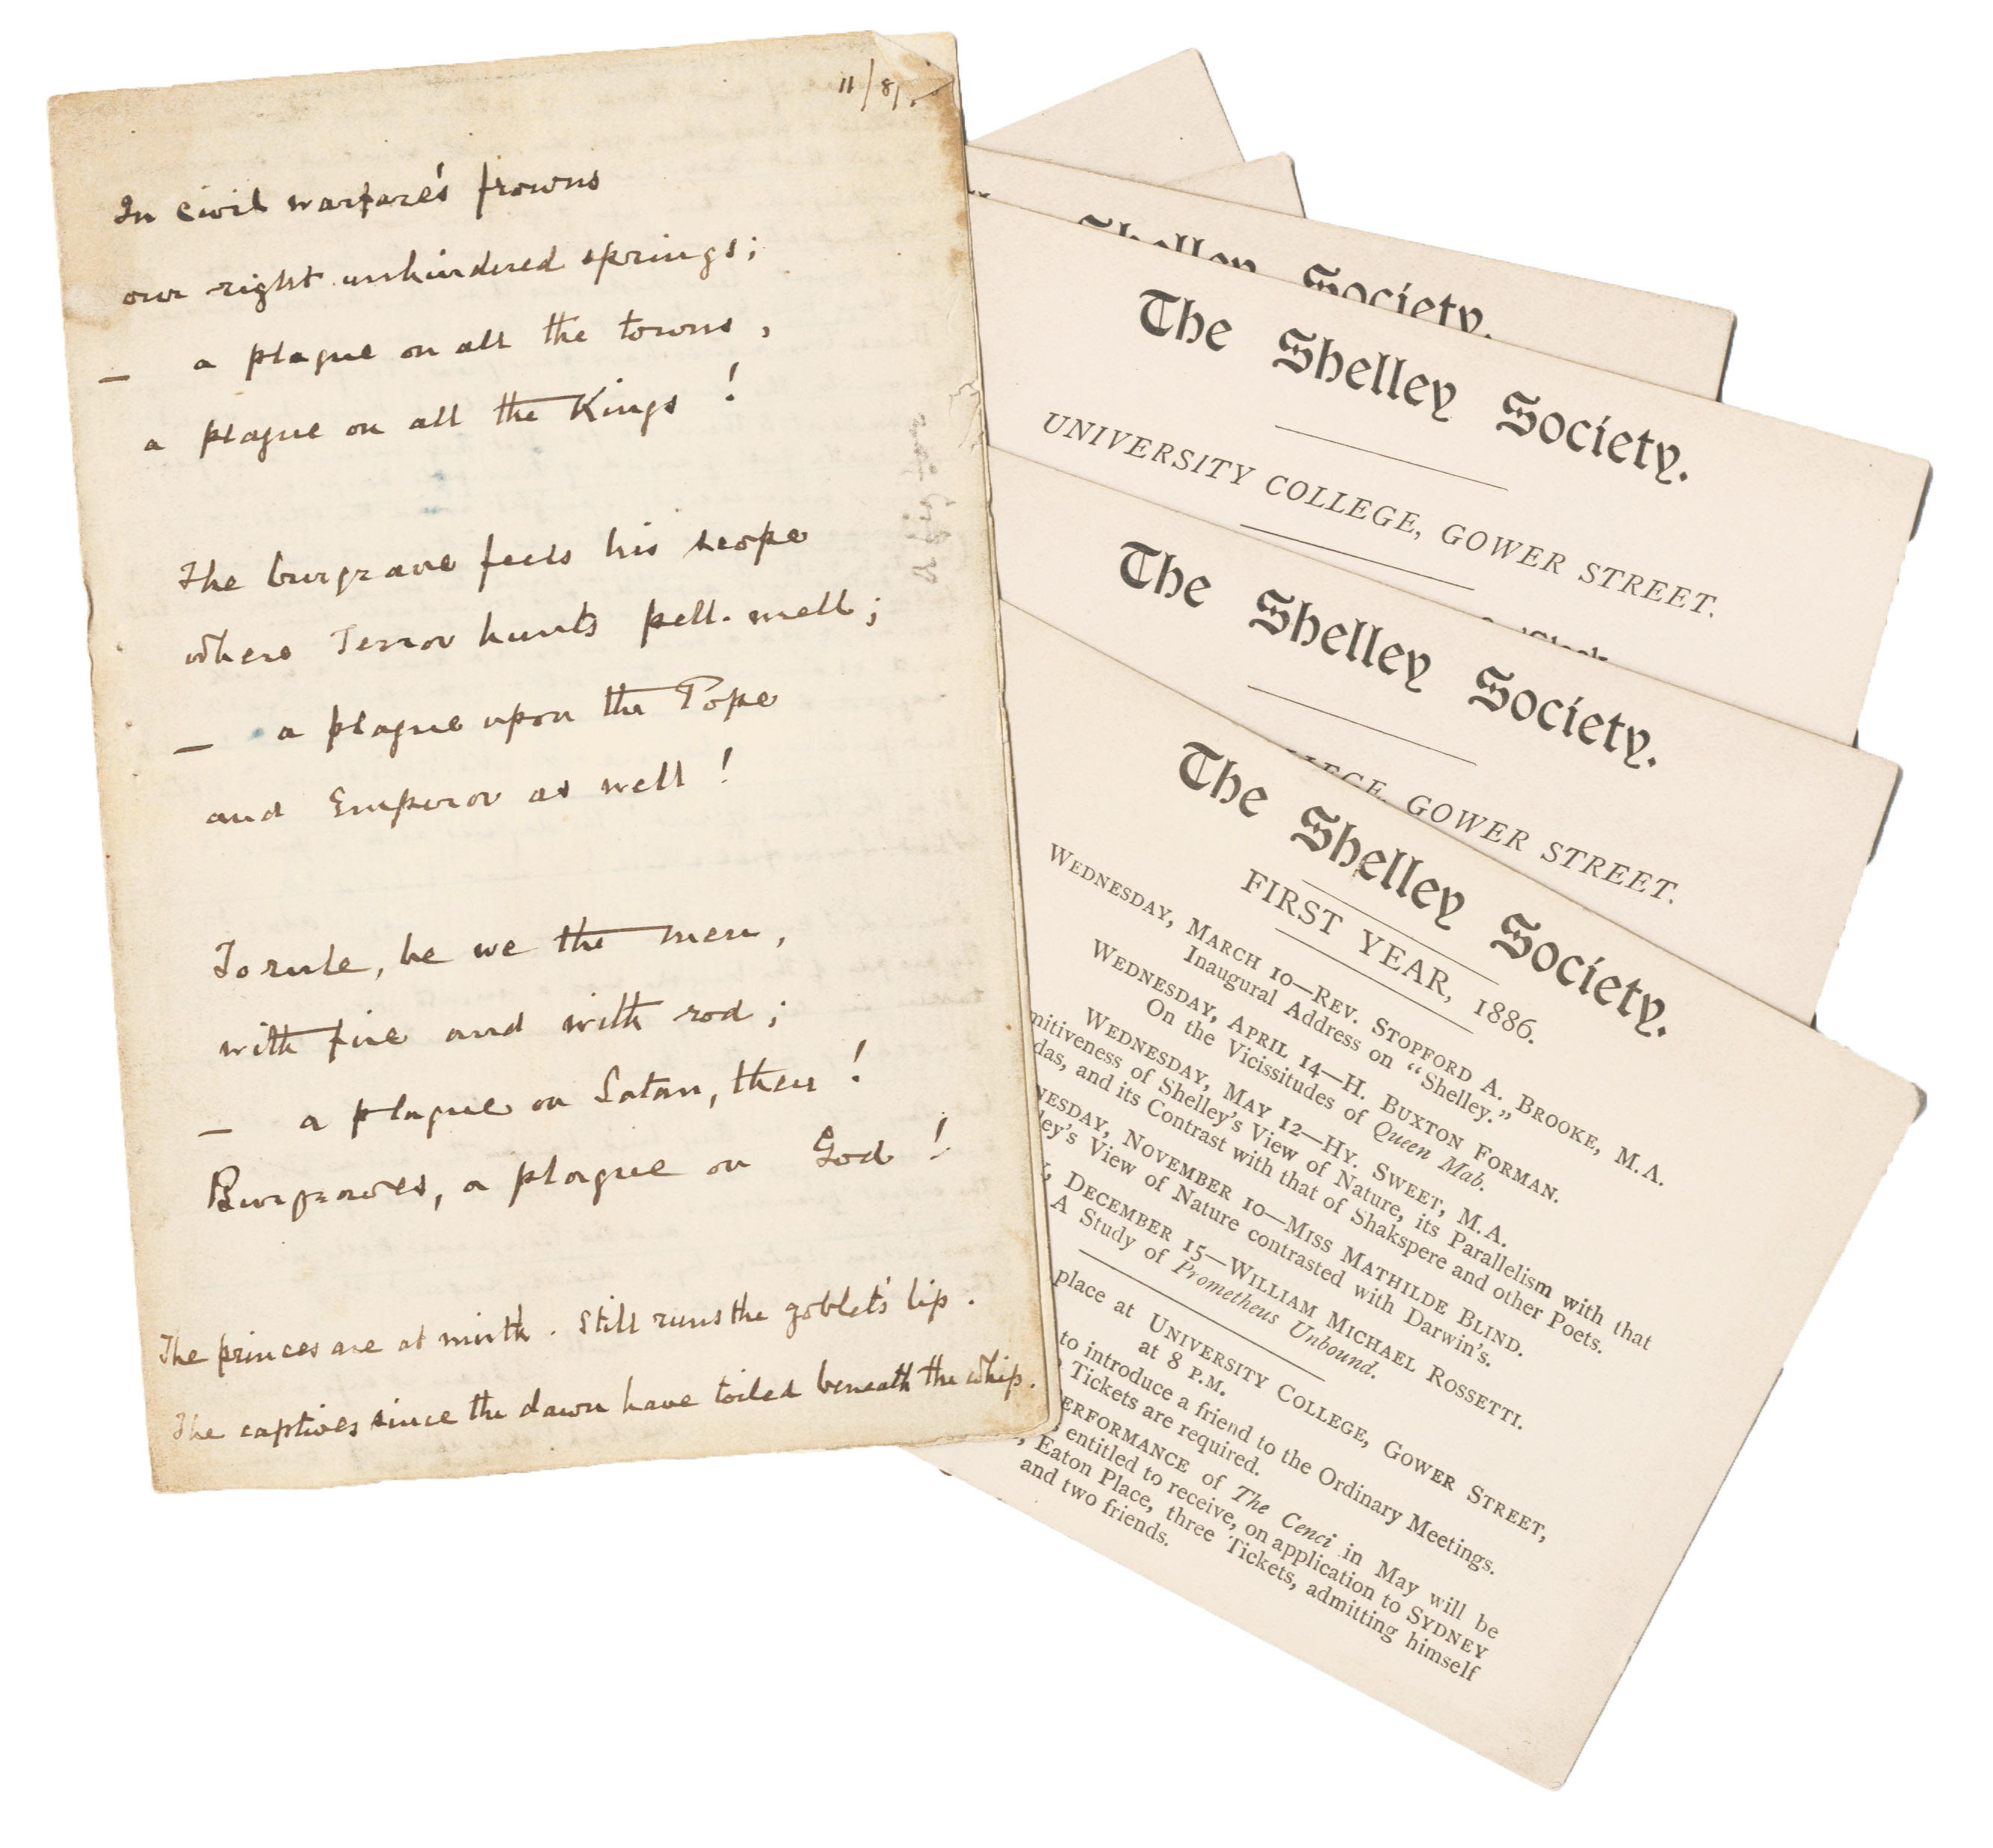 11/81.
In civil warfare's frowns
our right unhindered springs;
— a plague on all the towns,
a plague on all the Kings!
The burgrave feels his scope
where Terror hunts pell-mell;
— a plague upon the Pope
and Emperor as well!
To rule, be we the men,
with fire and with rod;
— a plague on Satan, then!
Burgraves, a plague on God!
The princes are at mirth. Still runs the goblet's lip.
The captives since the dawn have toiled beneath the whip.
Shelley Society.
The Shelley Society.
UNIVERSITY COLLEGE, GOWER STREET.
The Shelley Society.
LEGE, GOWER STREET.
The Shelley Society.
FIRST YEAR, 1886.
WEDNESDAY, MARCH 10—REV. STOPFORD A. BROOKE, M.A.
Inaugural Address on “Shelley.”
WEDNESDAY, APRIL 14—H. BUXTON FORMAN.
On the Vicissitudes of Queen Mab.
WEDNESDAY, MAY 12—HY. SWEET, M.A.
mitiveness of Shelley's View of Nature, its Parallelism with that
das, and its Contrast with that of Shakspere and other Poets.
NESDAY, NOVEMBER 10—MISS MATHILDE BLIND.
ley's View of Nature contrasted with Darwin's.
DECEMBER 15—WILLIAM MICHAEL ROSSETTI.
A Study of Prometheus Unbound.
place at UNIVERSITY COLLEGE, GOWER STREET,
at 8 P.M.
to introduce a friend to the Ordinary Meetings.
Tickets are required.
ERFORMANCE of The Cenci in May will be
entitled to receive, on application to SYDNEY
, Eaton Place, three Tickets, admitting himself
and two friends.